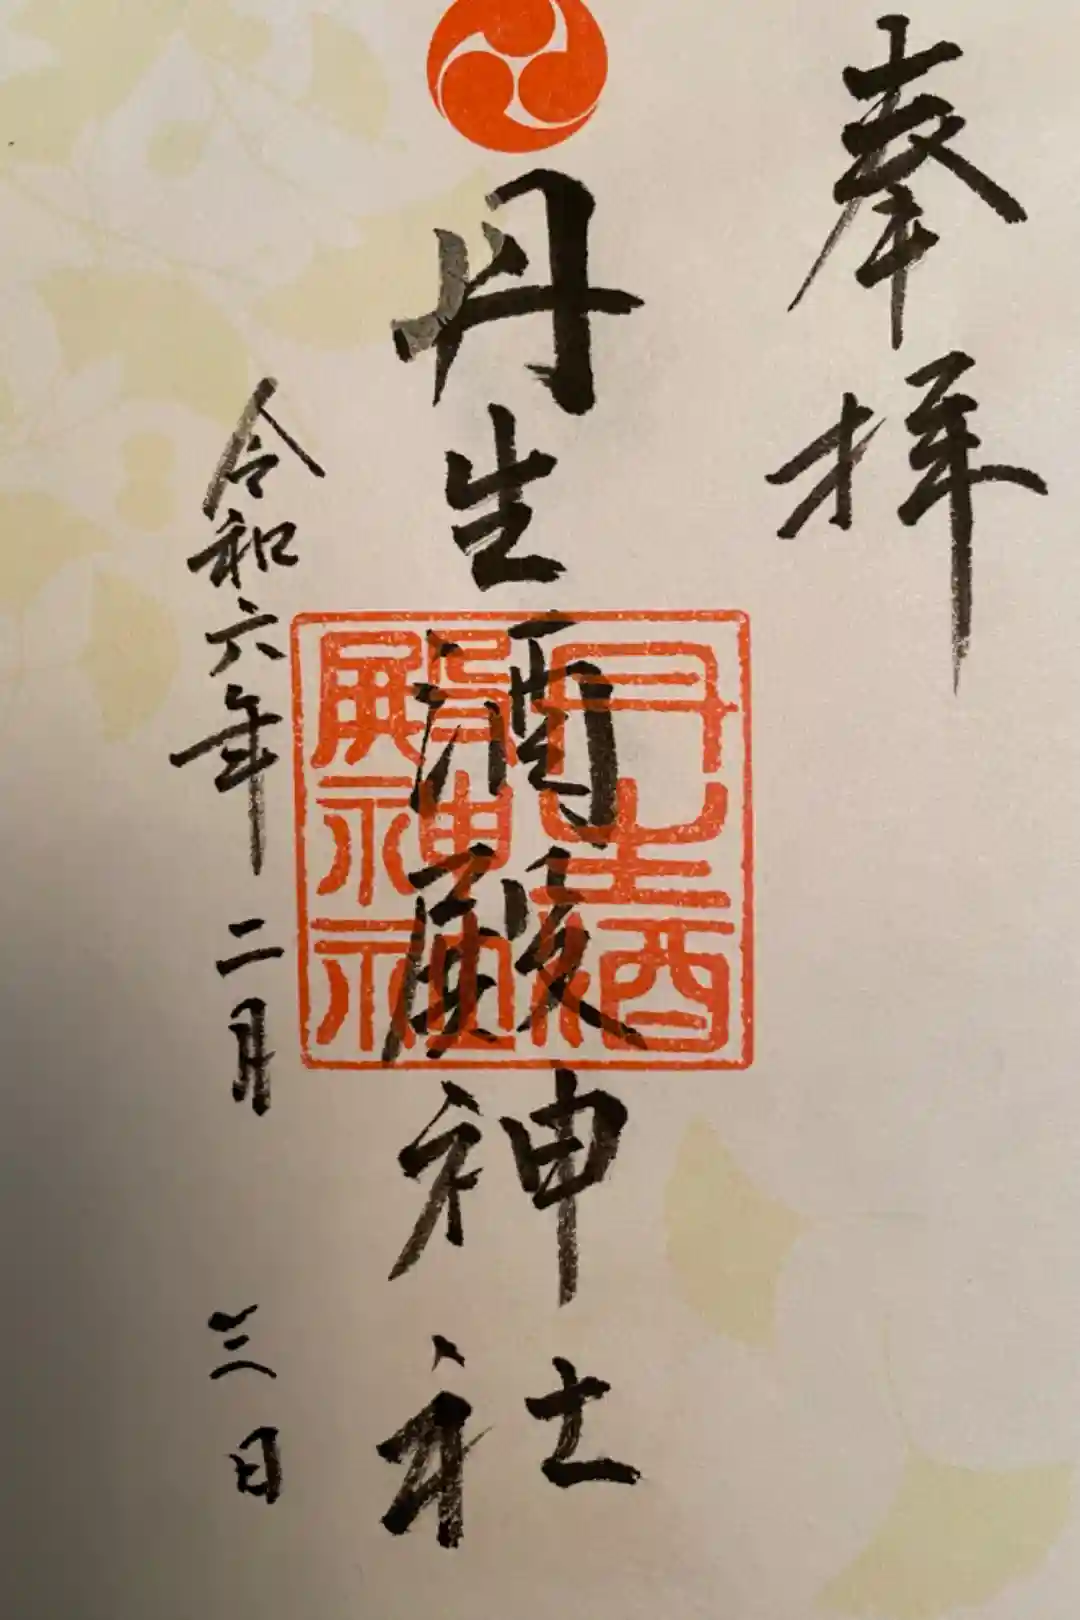 奉拝
丹生酒殿神社
丹生酒
殿神社
令和六年二月三日